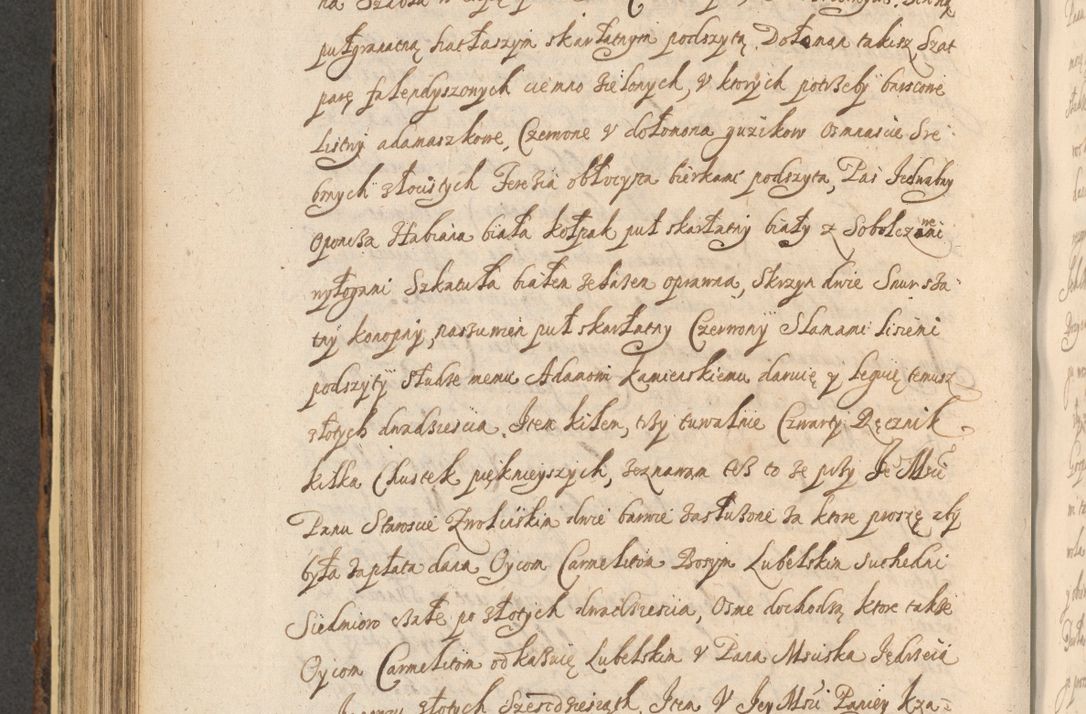 na Szabla
pułgranatną hatłaszym skarłatnym podszytą Dołoman takisz, Szat
parę falendyszonych ciemno zielonych, v ktorych potrzeby barscone
Listny adamaszkowe, Czemone v dołomona guzikow Osmnascie Sre
brnych złocistych Ferezia obłoczysta bierkamy podszyta, Pas Jedwabny
Oponcza Habiana biała kołpak puł skarłatny biały z Sobolczani
wyłogami Szkatuła białem żelazem oprawna, Skrzyn dwie Snur sza
try konopny, naszumien puł skarłatny Czerwony Slamami lisiemi
podszyty Słudze memu Adamowi Kamienskiemu daruię y Leguię temusz
złotych dwadziescia. Item kilem, trzy tuwalnie Czwarty Ręcznik
kilka Chustek pięknieyszych, zeznawam tesz to że przy Je Mści
Panu Staroscie Zwolińskim dwie barwie zasłużone za ktore proszę aby
była zapłata dana Oycom Carmelitom Bosym Lubelskim suchedni
Siedmioro czałe po złotych dwadziescia, Osme dochodzą ktore także
Oycom Carmelitom odkazuię Lubelskim v Pana Msciska Jędrzeia
złotych Szescdziesiąth, Item V Jey Mści Paniey Kza=